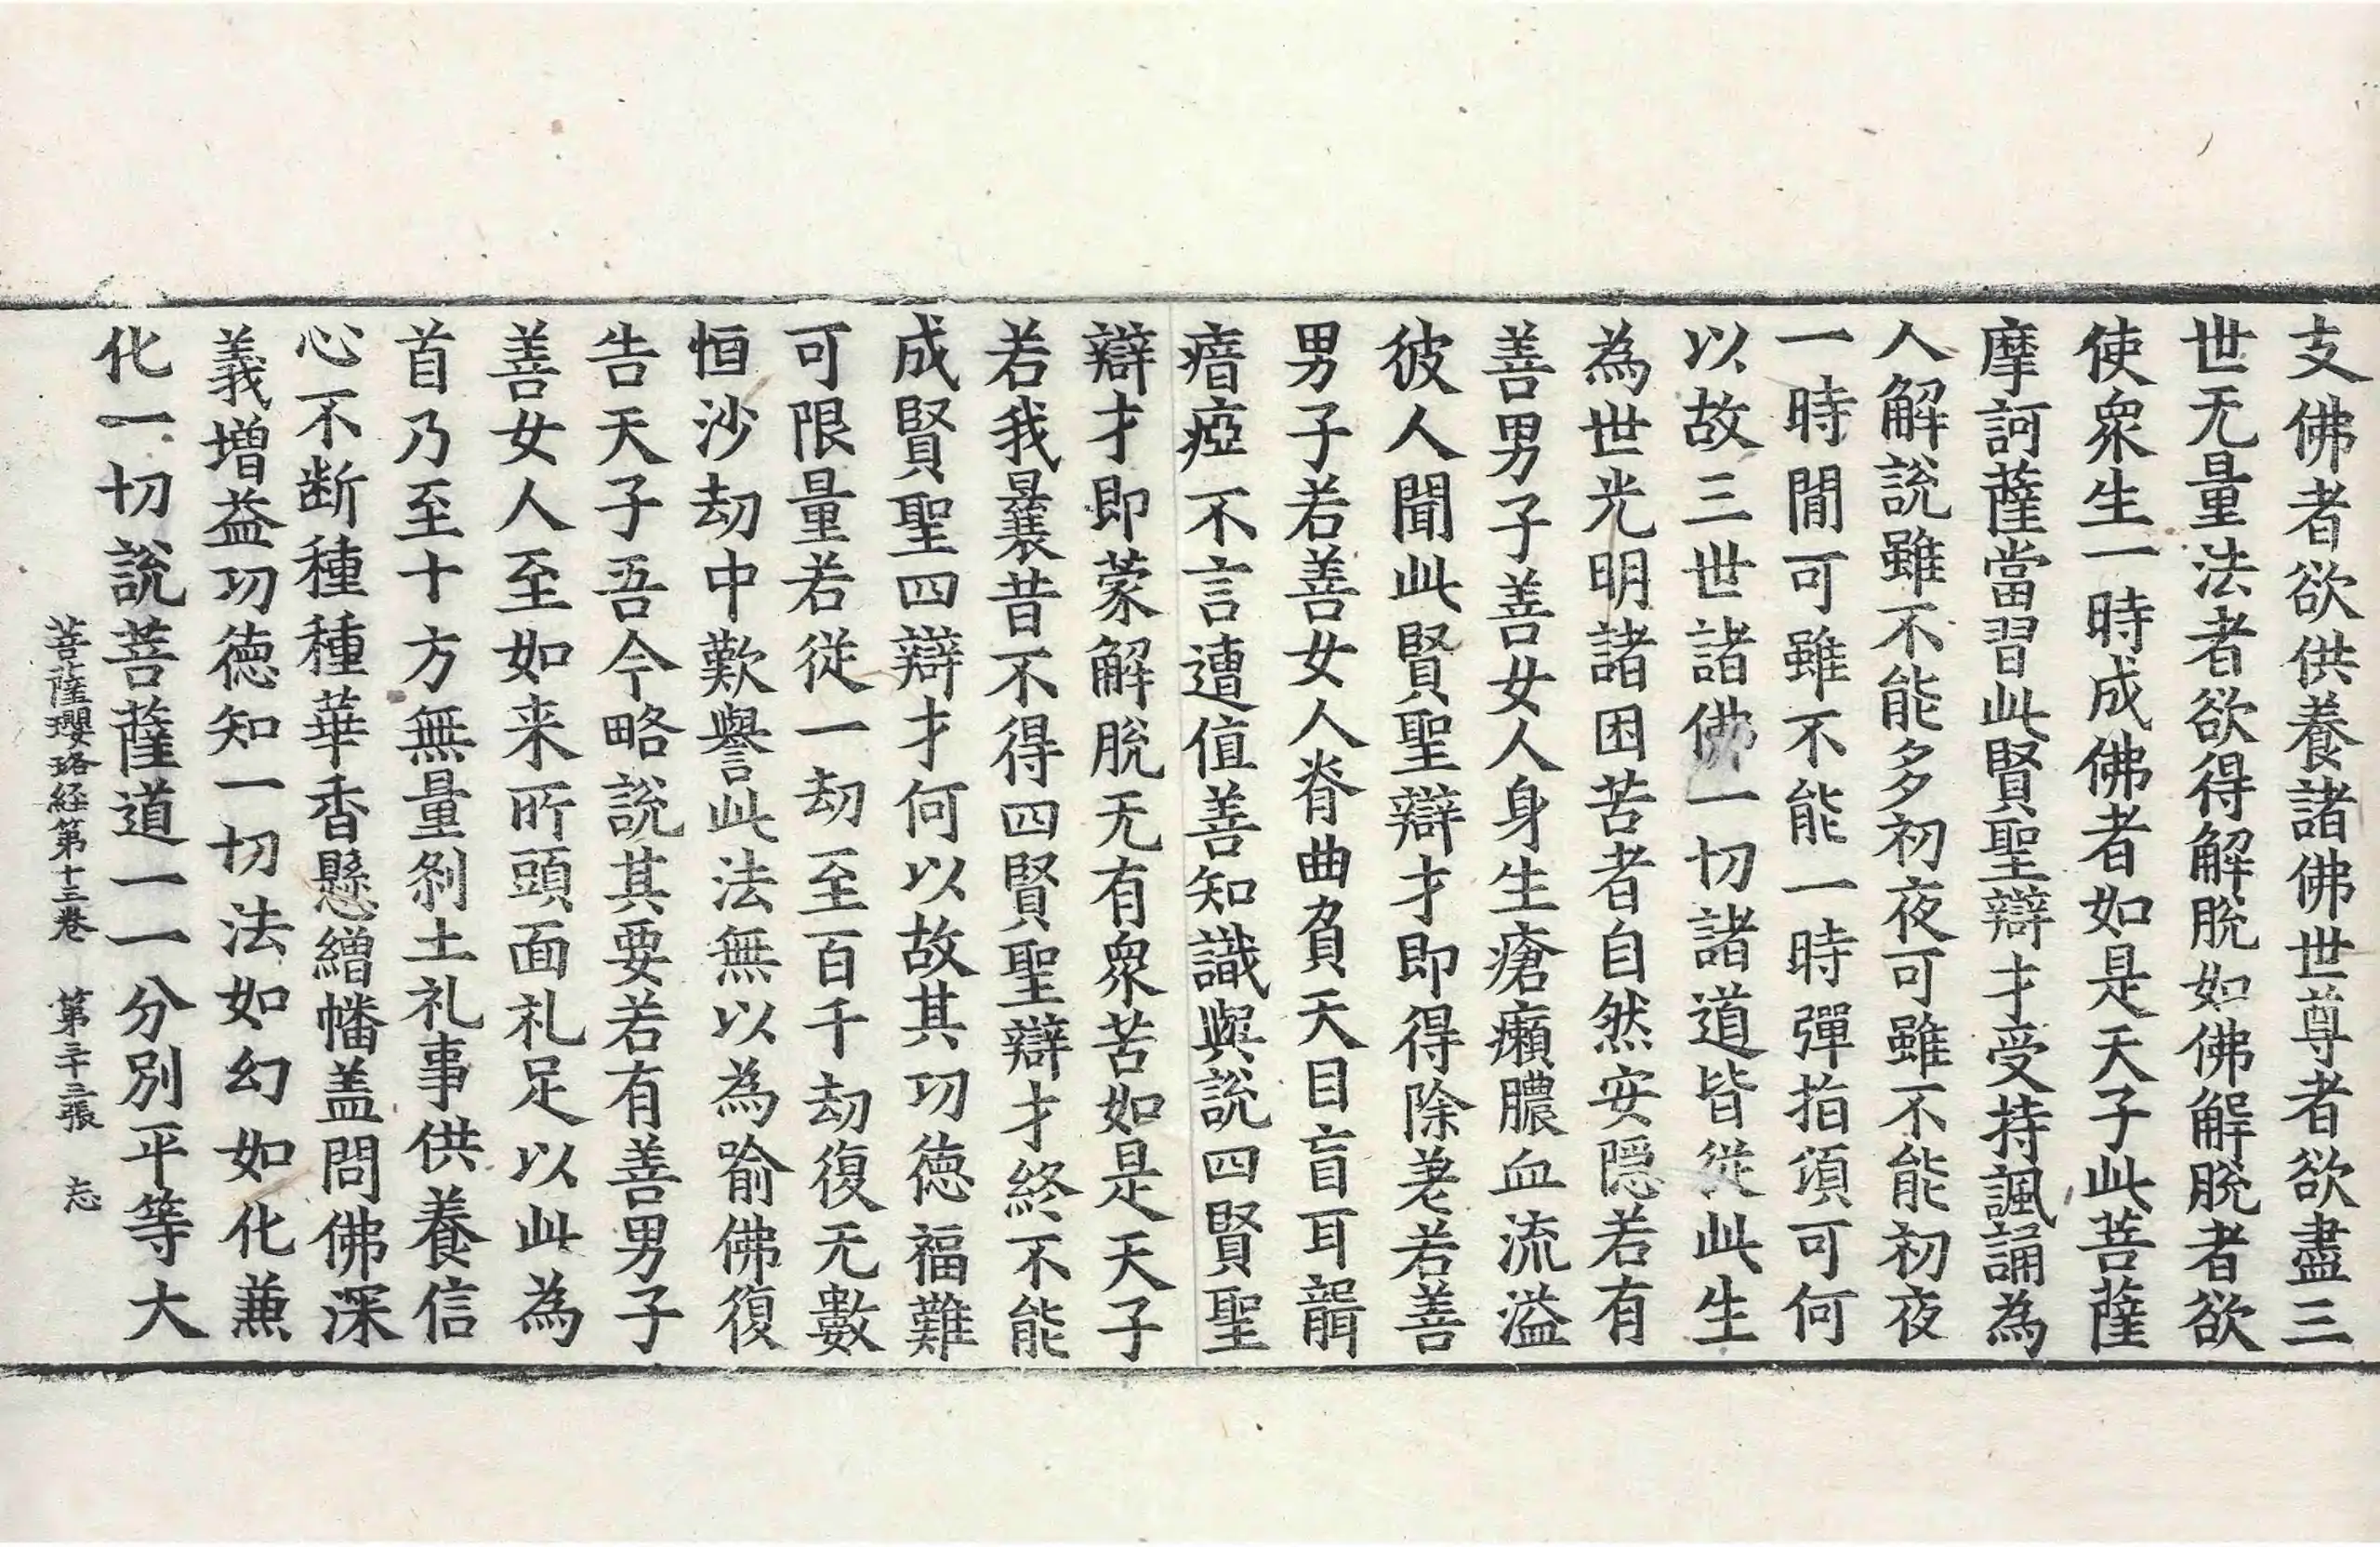 支佛者欲供養諸佛世尊者欲盡三
世无量法者欲得解脫如佛解脫者欲
使衆生一時成佛者如是天子此菩薩
摩訶薩當習此賢聖辯才受持諷誦為
人解說雖不能多初夜可雖不能初夜
一時閒可雖不能一時彈指頃可何
以故三世諸佛一切諸道皆從此生
為世光明諸困苦者自然安隱若有
善男子善女人身生瘡癩膿血流溢
彼人聞此賢聖辯才即得除差若善
男子若善女人脊曲負天目盲耳聾
瘖瘂不言遭值善知識與說四賢聖
辯才即蒙解脫无有衆苦如是天子
若我曩昔不得四賢聖辯才終不能
成賢聖四辯才何以故其功德福難
可限量若從一劫至百千劫復无數
恒沙劫中歎譽此法無以為喻佛復
告天子吾今略說其要若有善男子
善女人至如来所頭面礼足以此為
首乃至十方無量剎土礼事供養信
心不断種種華香懸繒幡盖問佛深
義增益功德知一切法如幻如化兼
化一切說菩薩道一一分別平等大
菩薩瓔珞経第十三卷 第二十二張 忘